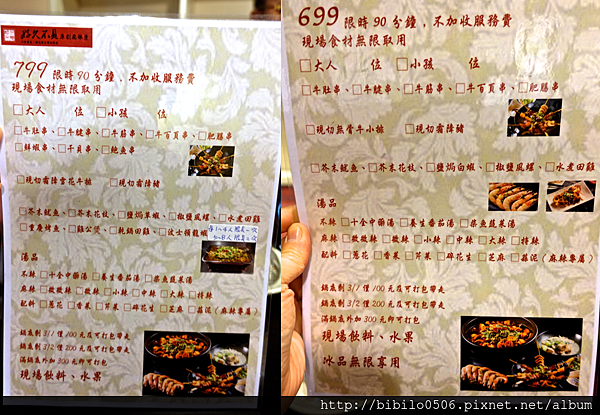 799 限時90分鐘、不加收服務費
現場食材無限取用
□大人 位 □小孩 位
□牛肚串、□牛腱串、□牛筋串、□牛百頁串、□肥腸串
□鮮蝦串、□干貝串、□鮑魚串
□現切霜降雪花牛排 □現切霜降豬
□芥末魷魚、□芥末花枝、□鹽焗草蝦、□椒鹽風螺、□水煮田雞
□重慶烤魚、□雞公煲、□乾鍋田雞、□波士頓龍蝦
湯品
不辣 □十全中藥湯 □養生番茄湯 □柴魚蔬果湯
麻辣 □微微辣 □微辣 □小辣 □中辣 □大辣 □特辣
配料 □蔥花 □香菜 □芹菜 □碎花生 □芝麻 □蒜泥(麻辣專屬)
鍋底剩 3/1 僅 100元及可打包帶走
鍋底剩 3/2 僅 200元及可打包帶走
滿鍋底外加 300元即可打包
現場飲料、水果
699 限時90分鐘,不加收服務費
現場食材無限取用
□大人 位 □小孩 位
□牛肚串、□牛腱串、□牛筋串、□牛百頁串、□肥腸串
□現切無骨牛小排 □現切霜降豬
□芥末魷魚、□芥末花枝、□鹽焗白蝦、□椒鹽風螺、□水煮田雞
湯品
不辣 □十全中藥湯 □養生番茄湯 □柴魚蔬果湯
麻辣 □微微辣 □微辣 □小辣 □中辣 □大辣 □特辣
配料 □蔥花 □香菜 □芹菜 □碎花生 □芝麻 □蒜泥(麻辣專屬)
鍋底剩 3/1 僅 100元及可打包帶走
鍋底剩 3/2 僅 200元及可打包帶走
滿鍋底外加 300元即可打包
現場飲料、水果
冰品無限享用
http://bibilo0506.pixnet.net/album